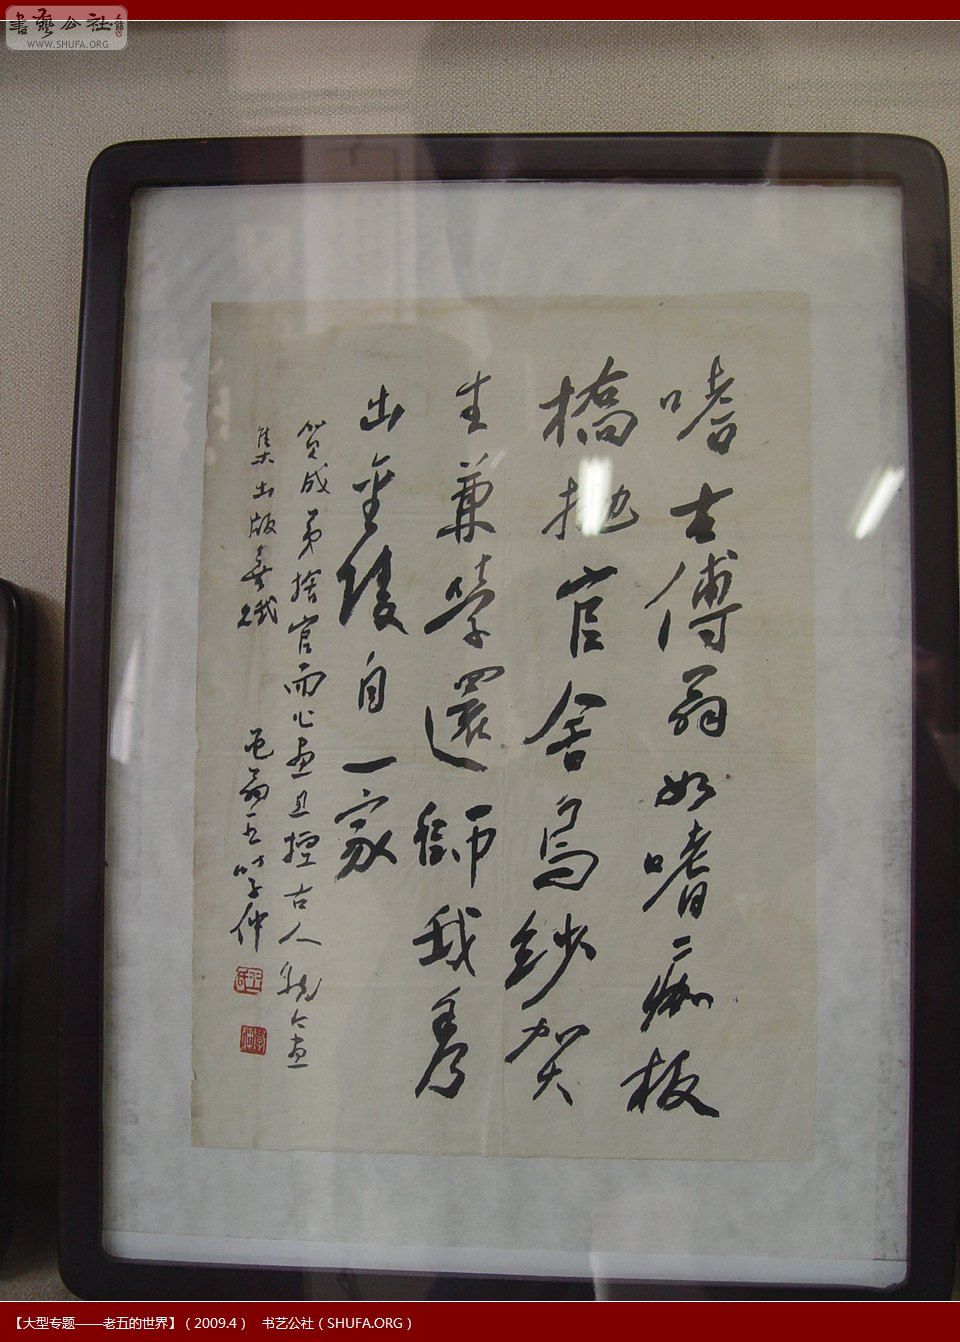 書藝公社
WWW.SHUFA.ORG
嗜古傅翁如嗜痂板
橋拋官舍烏紗賀
生兼學還師我秀
出金陵自一家
贺成弟捨官而心画且擅古人画
集出版喜賦
黾翁王学仲
【大型专题——老五的世界】（2009.4） 书艺公社（SHUFA.ORG）